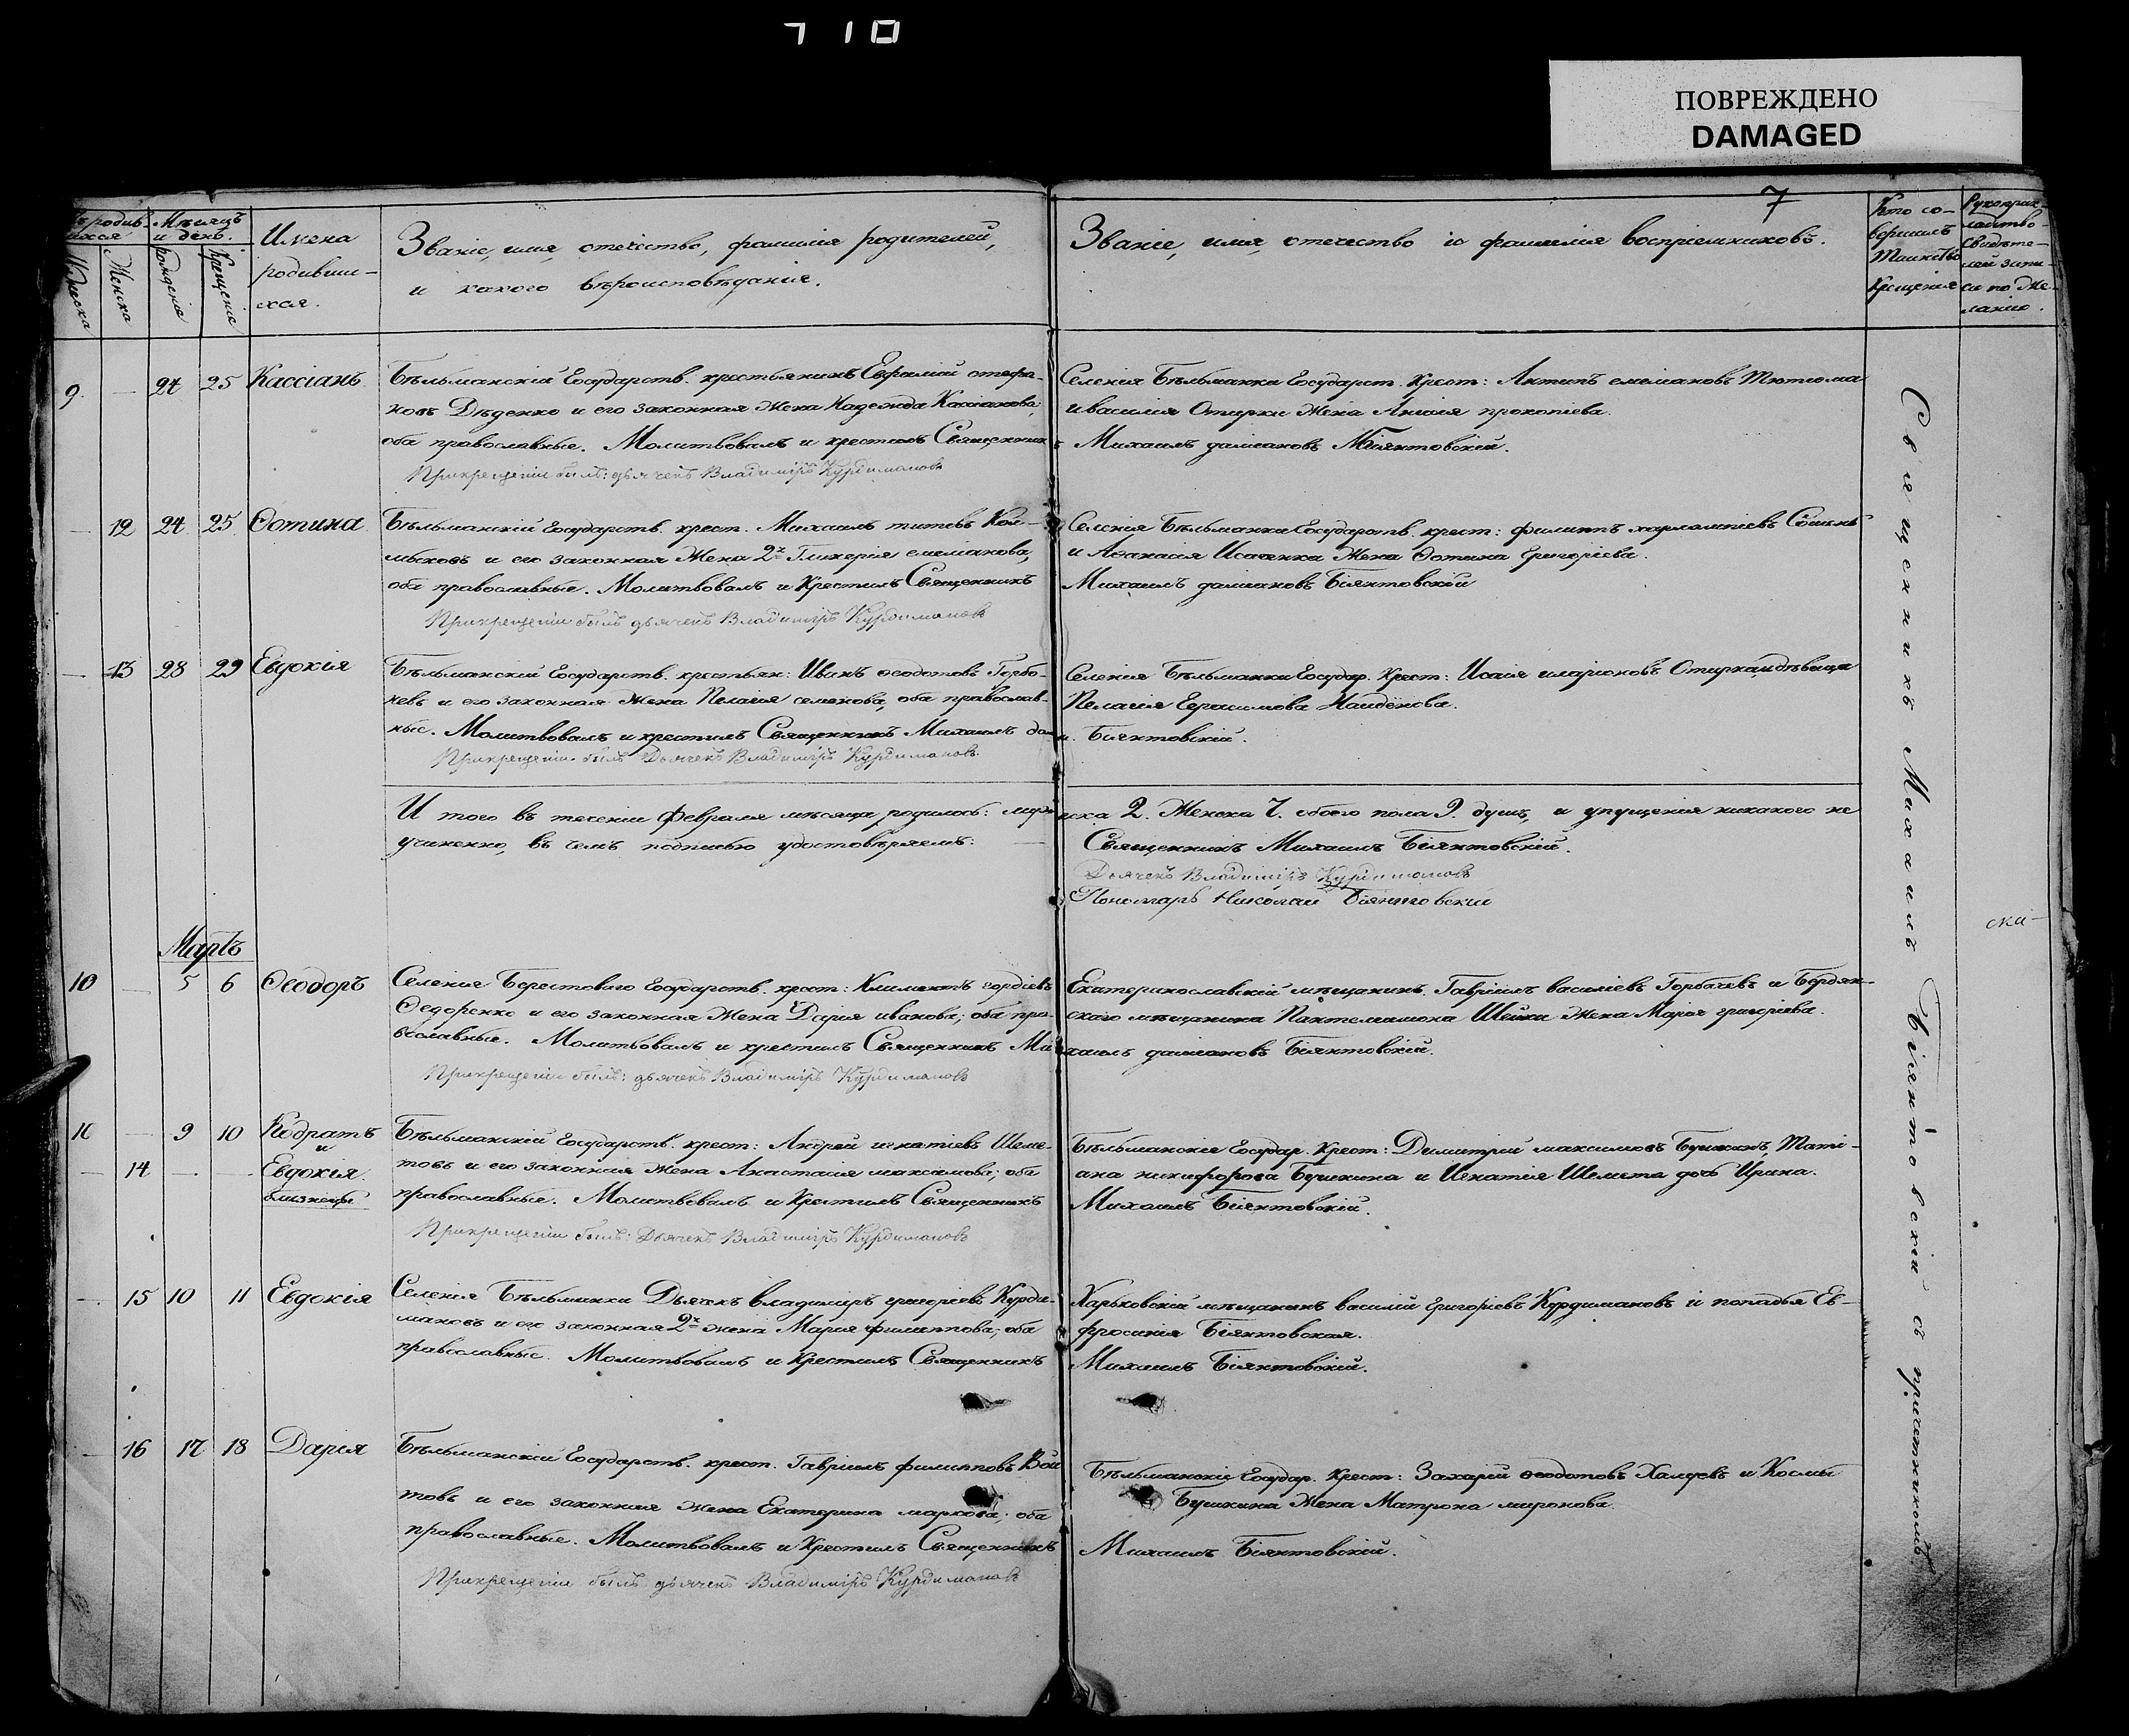 710
ПОВРЕЖДЕНО
DAMAGED
7
родив-
шихся
Мѣсяцъ
и день.
Имена
родивши-
хся.
Званіе, имя, отечество, фамилія родителей,
и какого вѣроисповѣданія.
Званіе, имя, отечество и фамилія воспріемниковъ.
Кто со-
вершилъ
Таинство
Крещенія
Рукоприк-
латство
Свидѣте-
лей запи-
си по Же-
ланію.
Мужеска
Женска
Рожденіе
Крещеніе
9. — 24 25 Кассіанъ
Бѣльманскій Государств. крестьянинъ Ефремій стефа-
новъ Дѣденко и его законная Жена Надежда Кассіанова,
оба православные. Молитвовалъ и крестилъ Священникъ
Прикрещеніи былъ: дьячекъ Владиміръ Курдимановъ
Селенія Бѣльманки Государст. Крест: Антипъ емеліановъ Тютюма
и василія Отирки Жена Анисія прокопіева.
Михаилъ даміановъ Біянтовскій.
— 12 24 25 Ѳотина
Бѣльманскій Государств. крест. Михаилъ титовъ Кол-
мыковъ и его законная Жена 2я Гликерія емеліанова,
оба православные. Молитвовалъ и Крестилъ Священникъ
Прикрещеніи былъ дьячекъ Владиміръ Курдимановъ
Селенія Бѣльманки Государств. крест: филиппъ харлампіевъ
и Аѳанасія Исаенка Жена Ѳотина Григоріева.
Михаилъ даміановъ Біянтовскій
— 13 28 29 Евдокія
Бѣльманскій Государств. крестьян: Иванъ ѳеодотовъ Горбо-
невъ и его законная Жена Пелагія семенова, оба православ-
ные. Молитвовалъ и крестилъ Священникъ Михаилъ дам
Прикрещеніи былъ Дьячекъ Владиміръ Курдимановъ.
Селенія Бѣльманки Государ. Крест: Исаія иларіоновъ Отирка и дѣвица
Пелагія Герасимова Найдёнова.
и. Біянтовскій.
И того въ теченіи Февраля мѣсяца родилось: муже
учиненно, въ чемъ подписью удостовѣряемъ: —
ска 2. Женска 7. обоего пола 9. душъ, и упущенія никакого не
Священникъ Михаилъ Біянтовскій.
Дьячекъ Владиміръ Курдимановъ
Пономарь Николай Біянтовскій
ска
Мартъ
10 — 5 6 Ѳеодоръ
Селенія Берестоваго Государств. крест: Климентъ гордіевъ
Ѳедоренко и его законная Жена Дарія иванова; оба пра-
вославные. Молитвовалъ и крестилъ Священникъ Ми
Прикрещеніи былъ: дьячекъ Владиміръ Курдимановъ
Екатеринославскій мѣщанинъ Гавріилъ василіевъ Горбачевъ и Бердян-
скаго мѣщанина Пантелимона Шейки Жена Марія григоріева.
хаилъ даміановъ Біянтовскій.
— 9 10 Кодратъ
и
— 14 — — Евдокія
близнецы
Бѣльманскій Государств. крест: Андрей игнатіевъ Шеме-
товъ и его законная жена Анастасія максимова; оба
православные. Молитвовалъ и Крестилъ Священникъ
Прикрещеніи былъ: Дьячекъ Владиміръ Курдимановъ
Бѣльманскіе Государ. Крест: Димитрій максимовъ Бушкинъ, Тати-
ана никифорова Бушкина и Игнатія Шемета дочь Ирина.
Михаилъ Біянтовскій.
— 15 10 11 Евдокія
Селенія Бѣльманки Дьячекъ владиміръ григоріевъ Курди-
мановъ и его законная 2я жена Марія филиппова; оба
православные. Молитвовалъ и Крестилъ Священникъ
Харьковскій мѣщанинъ василій Григоріевъ Курдимановъ и попадья Ев-
фросинія Біянтовская.
Михаилъ Біянтовскій.
— 16 17 18 Дарія
Бѣльманскій Государств. крест. Гавріилъ филипповъ Вой
товъ и его законная жена Екатерина маркова; оба
православные. Молитвовалъ и Крестилъ Священникъ
Прикрещеніи былъ дьячекъ Владиміръ Курдимановъ
Бѣльманскіе Государ. Крест: Захарій ѳеодотовъ Халцевъ и Космы
Бушкина Жена Матрона миронова.
Михаилъ Біянтовскій.
Священникъ Михаилъ Біянтовскій съ причетникомъ